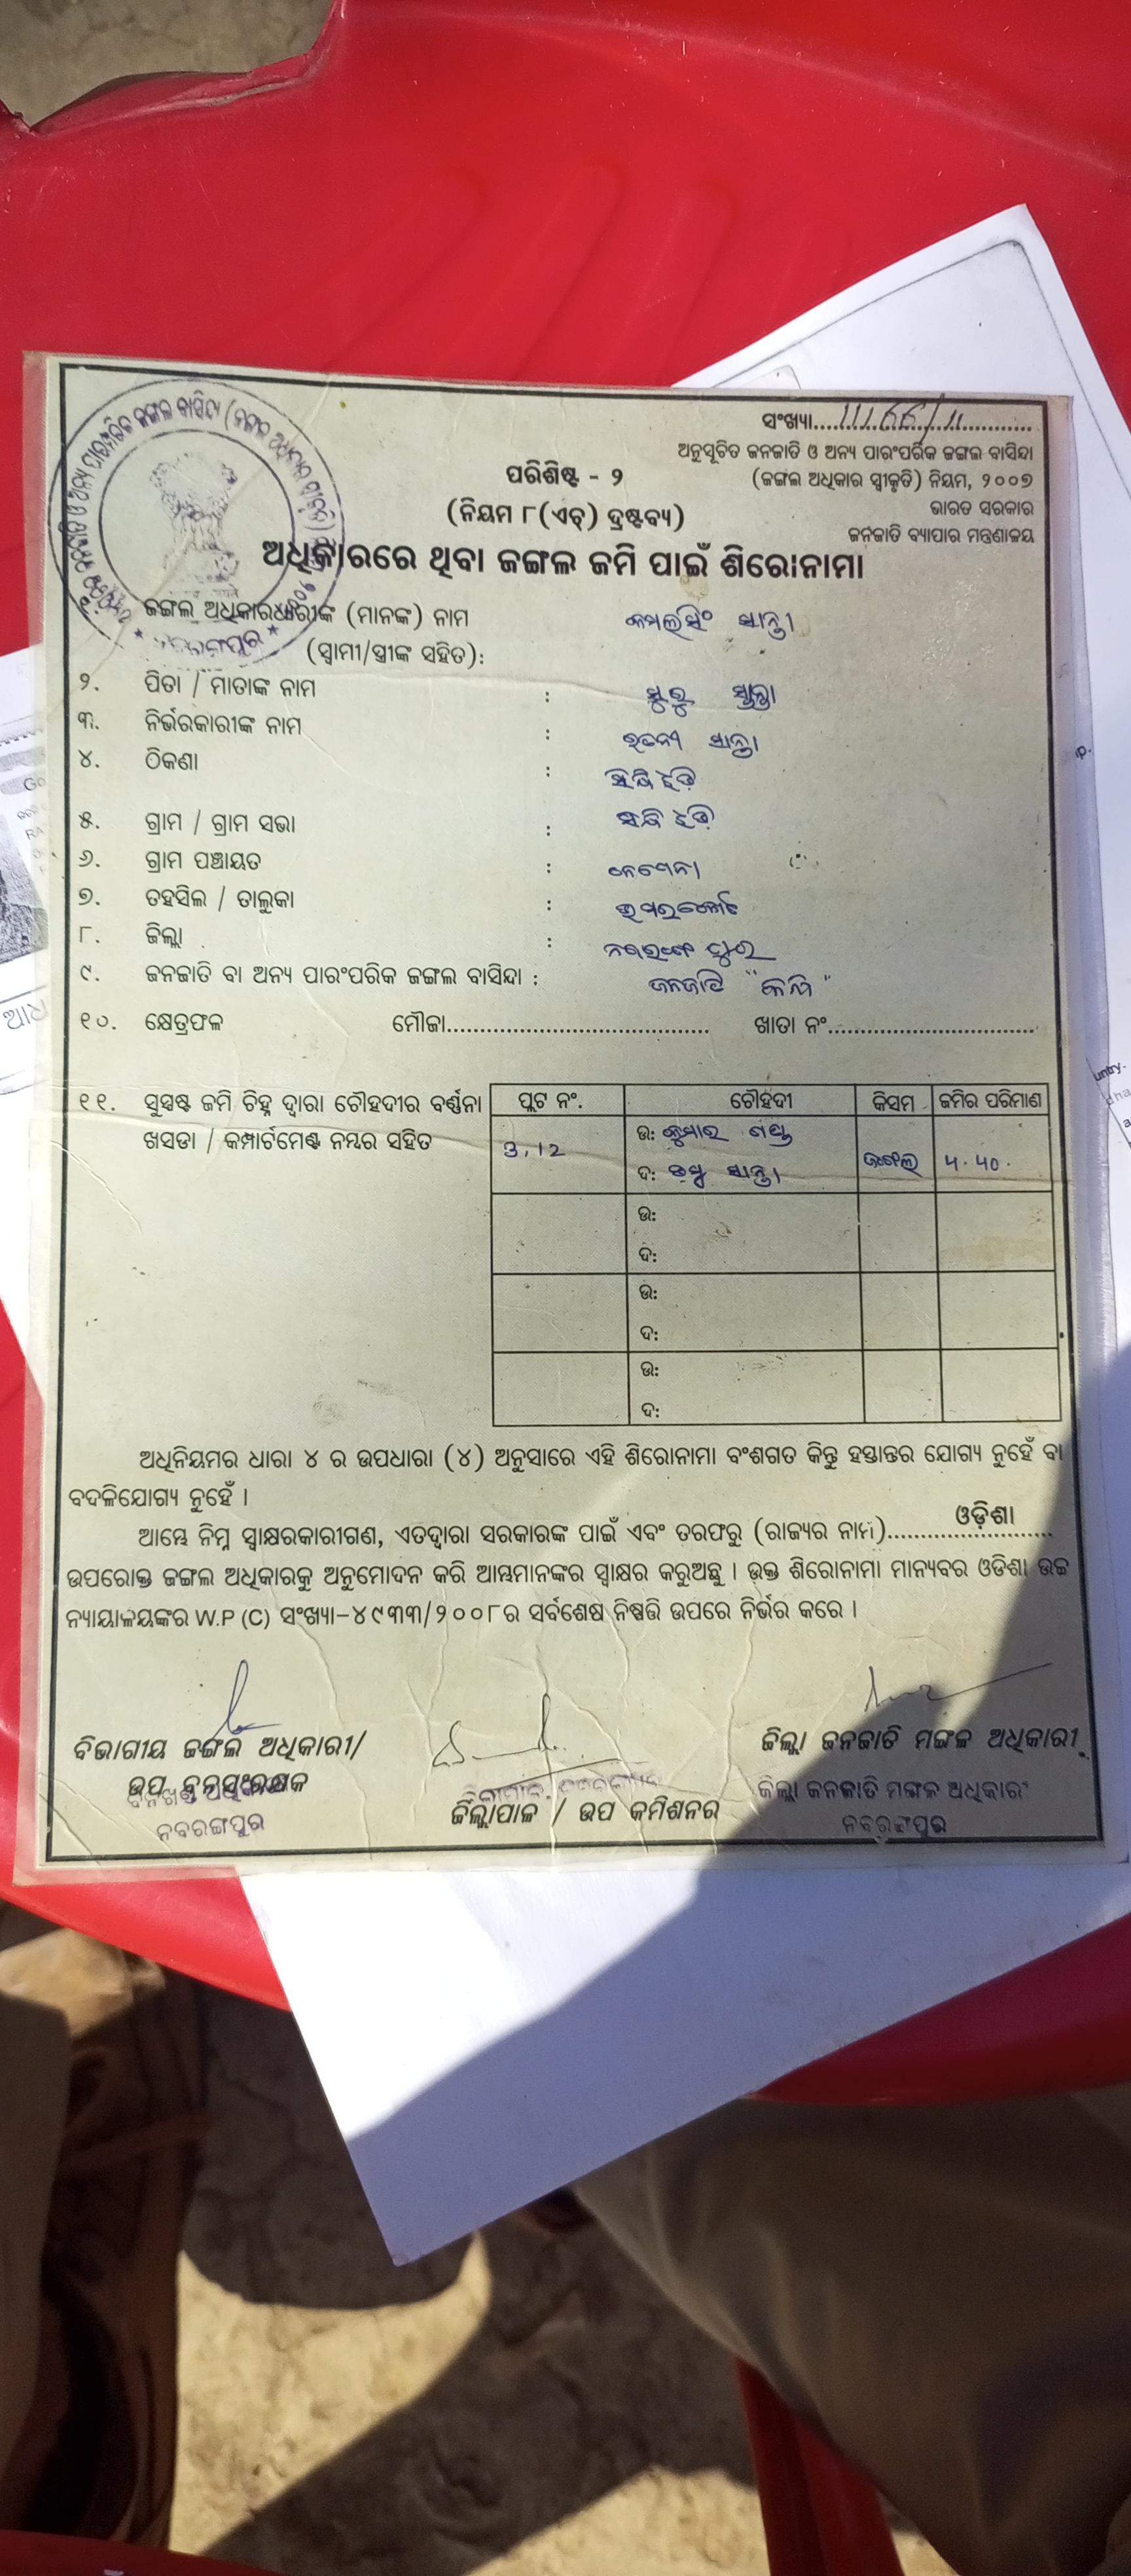 ସଂଖ୍ୟା....1166/11............
ଅନୁସୂଚିତ ଜନଜାତି ଓ ଅନ୍ୟ ପାରଂପରିକ ଜଙ୍ଗଲ ବାସିନ୍ଦା
(ଜଙ୍ଗଲ ଅଧିକାର ସ୍ୱୀକୃତି) ନିୟମ, ୨୦୦୭
ଭାରତ ସରକାର
ଜନଜାତି ବ୍ୟାପାର ମନ୍ତ୍ରଣାଳୟ
ପରିଶିଷ୍ଟ - ୨
(ନିୟମ ୮(ଏଚ୍) ଦ୍ରଷ୍ଟବ୍ୟ)
ଅଧିକାରରେ ଥିବା ଜଙ୍ଗଲ ଜମି ପାଇଁ ଶିରୋନାମା
ଜଙ୍ଗଲ ଅଧିକାରଧାରୀଙ୍କ (ମାନଙ୍କ) ନାମ କମଲସିଂ ସାନ୍ତା
(ସ୍ୱାମୀ/ସ୍ତ୍ରୀଙ୍କ ସହିତ):
୨. ପିତା / ମାତାଙ୍କ ନାମ : ସାନ୍ତା
୩. ନିର୍ଭରକାରୀଙ୍କ ନାମ : ସାନ୍ତା
୪. ଠିକଣା :
୫. ଗ୍ରାମ / ଗ୍ରାମ ସଭା :
୬. ଗ୍ରାମ ପଞ୍ଚାୟତ :
୭. ତହସିଲ / ତାଲୁକା : ଉମରକୋଟ
୮. ଜିଲ୍ଲା : ନବରଙ୍ଗପୁର
୯. ଜନଜାତି ବା ଅନ୍ୟ ପାରଂପରିକ ଜଙ୍ଗଲ ବାସିନ୍ଦା : ଜନଜାତି
୧୦. କ୍ଷେତ୍ରଫଳ ମୌଜା...................................... ଖାତା ନଂ..............................
୧୧. ସୁସ୍ପଷ୍ଟ ଜମି ଚିହ୍ନ ଦ୍ୱାରା ଚୌହଦୀର ବର୍ଣ୍ଣନା
ଖସଡା / କମ୍ପାର୍ଟମେଣ୍ଟ ନମ୍ବର ସହିତ
ପ୍ଲଟ ନଂ. ଚୌହଦୀ କିସମ ଜମିର ପରିମାଣ
3.12 ଉ: କୁମାର ଜଙ୍ଗଲ 4.40.
ଦ: ସାନ୍ତା
ଉ:
ଦ:
ଉ:
ଦ:
ଉ:
ଦ:
ଅଧିନିୟମର ଧାରା ୪ ର ଉପଧାରା (୪) ଅନୁସାରେ ଏହି ଶିରୋନାମା ବଂଶଗତ କିନ୍ତୁ ହସ୍ତାନ୍ତର ଯୋଗ୍ୟ ନୁହେଁ ବା
ବଦଳିଯୋଗ୍ୟ ନୁହେଁ ।
ଆମ୍ଭେ ନିମ୍ନ ସ୍ୱାକ୍ଷରକାରୀଗଣ, ଏତଦ୍ୱାରା ସରକାରଙ୍କ ପାଇଁ ଏବଂ ତରଫରୁ (ରାଜ୍ୟର ନାମ)..........ଓଡ଼ିଶା..........
ଉପରୋକ୍ତ ଜଙ୍ଗଲ ଅଧିକାରକୁ ଅନୁମୋଦନ କରି ଆମ୍ଭମାନଙ୍କର ସ୍ୱାକ୍ଷର କରୁଅଛୁ । ଉକ୍ତ ଶିରୋନାମା ମାନ୍ୟବର ଓଡିଶା ଉଚ୍ଚ
ନ୍ୟାୟାଳୟଙ୍କର W.P (C) ସଂଖ୍ୟା-୪୯୩୩/୨୦୦୮ର ସର୍ବଶେଷ ନିଷ୍ପତ୍ତି ଉପରେ ନିର୍ଭର କରେ ।
ବିଭାଗୀୟ ଜଙ୍ଗଲ ଅଧିକାରୀ/
ଉପ ବନସଂରକ୍ଷକ
ନବରଙ୍ଗପୁର
ଜିଲ୍ଲାପାଳ / ଉପ କମିଶନର
ଜିଲ୍ଲା ଜନଜାତି ମଙ୍ଗଳ ଅଧିକାରୀ
ଜିଲ୍ଲା ଜନଜାତି ମଙ୍ଗଳ ଅଧିକାରୀ
ନବରଙ୍ଗପୁର